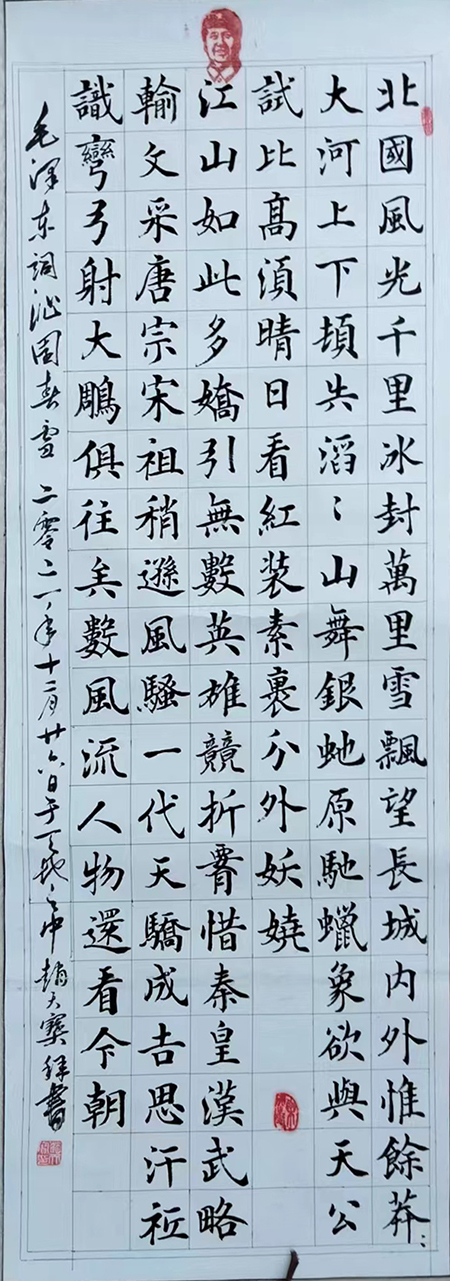 北國風光千里冰封萬里雪飄望長城內外惟餘莽〻
大河上下頓失滔〻山舞銀虵原馳蠟象欲與天公
試比髙須晴日看紅裝素裹分外妖嬈
江山如此多嬌引無數英雄競折惜秦皇漢武略
輸文采唐宗宋祖稍遜風騷一代天驕成吉思汗袛
識彎弓射大鵰俱往矣數風流人物還看今朝
毛澤东詞沁園春雪 二零二一年十二月廿六日于中趙大寶拜書